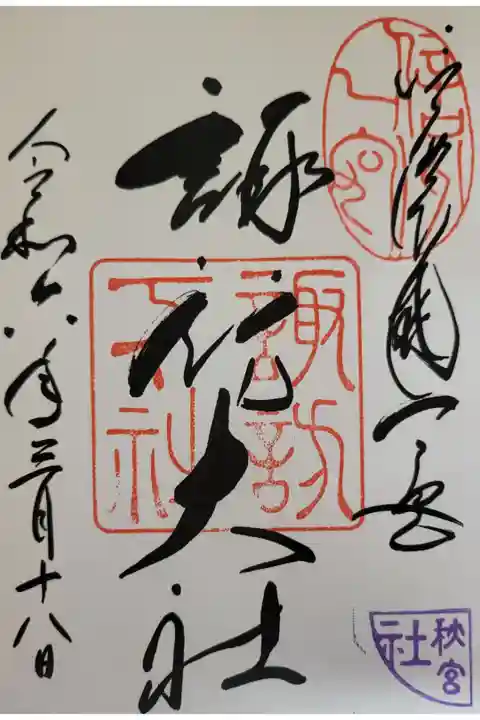 信濃國一宮
諏訪大社
令和六年三月十八日
信濃
一宮
諏訪
下社
秋宮
社